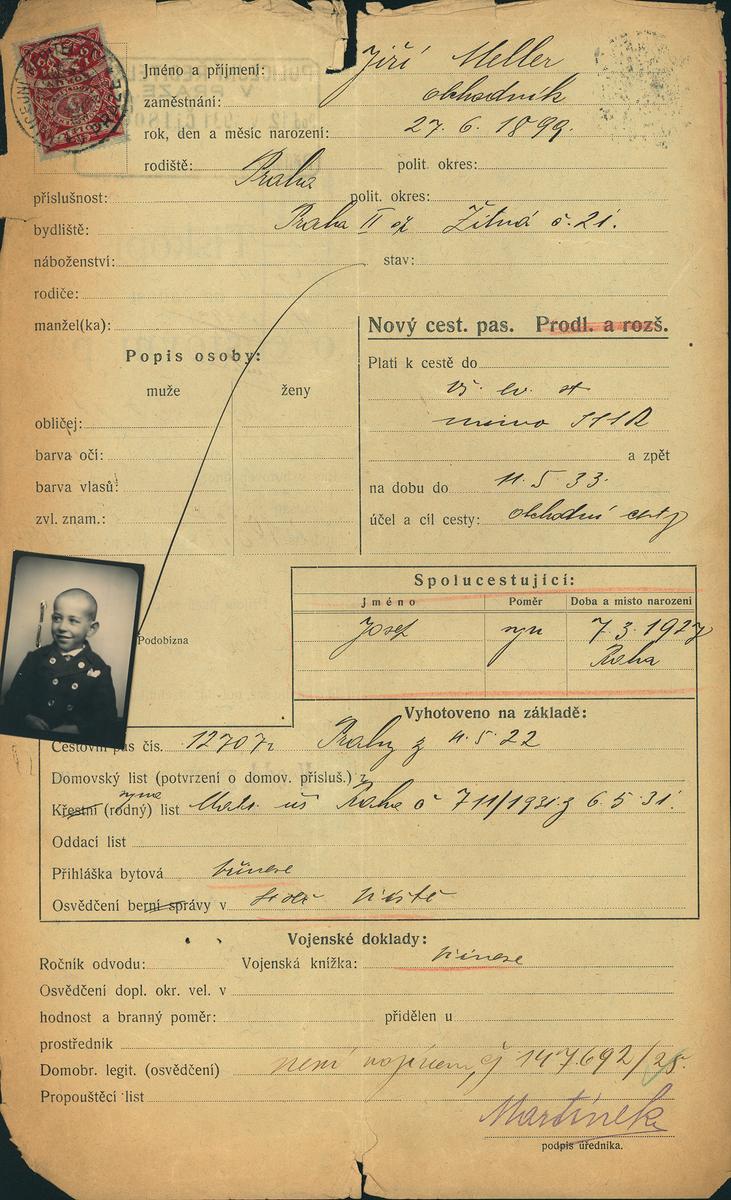 Jméno a příjmení: Jiří Meller
zaměstnání: obchodník
rok, den a měsíc narození: 27. 6. 1899.
rodiště: Praha polit. okres:
příslušnost: polit. okres:
bydliště: Praha II Žitná č. 21.
náboženství: stav:
rodiče:
manžel(ka):
Nový cest. pas. Prodl. a rozš.
Popis osoby:
muže ženy
obličej:
barva očí:
barva vlasů:
zvl. znam.:
Platí k cestě do
mimo
a zpět
na dobu do 11. 5. 33.
účel a cíl cesty: obchodní cesty
Podobizna
Spolucestující:
Jméno Poměr Doba a místo narození
Josef syn 7. 3. 1927
Praha
Vyhotoveno na základě:
Cestovní pas čís. 12707 Prahy z 4. 5. 22
Domovský list (potvrzení o domov. přísluš.) z
Křestní (rodný) list Praha č 711/1931 z 6. 5. 31.
Oddací list
Přihláška bytová
Osvědčení berní správy v
Vojenské doklady:
Ročník odvodu: Vojenská knížka:
Osvědčení dopl. okr. vel. v
hodnost a branný poměr: přidělen u
prostředník
Domobr. legit. (osvědčení) není vojínem, čj 147.692/28.
Propouštěcí list
Martínek
podpis úředníka.